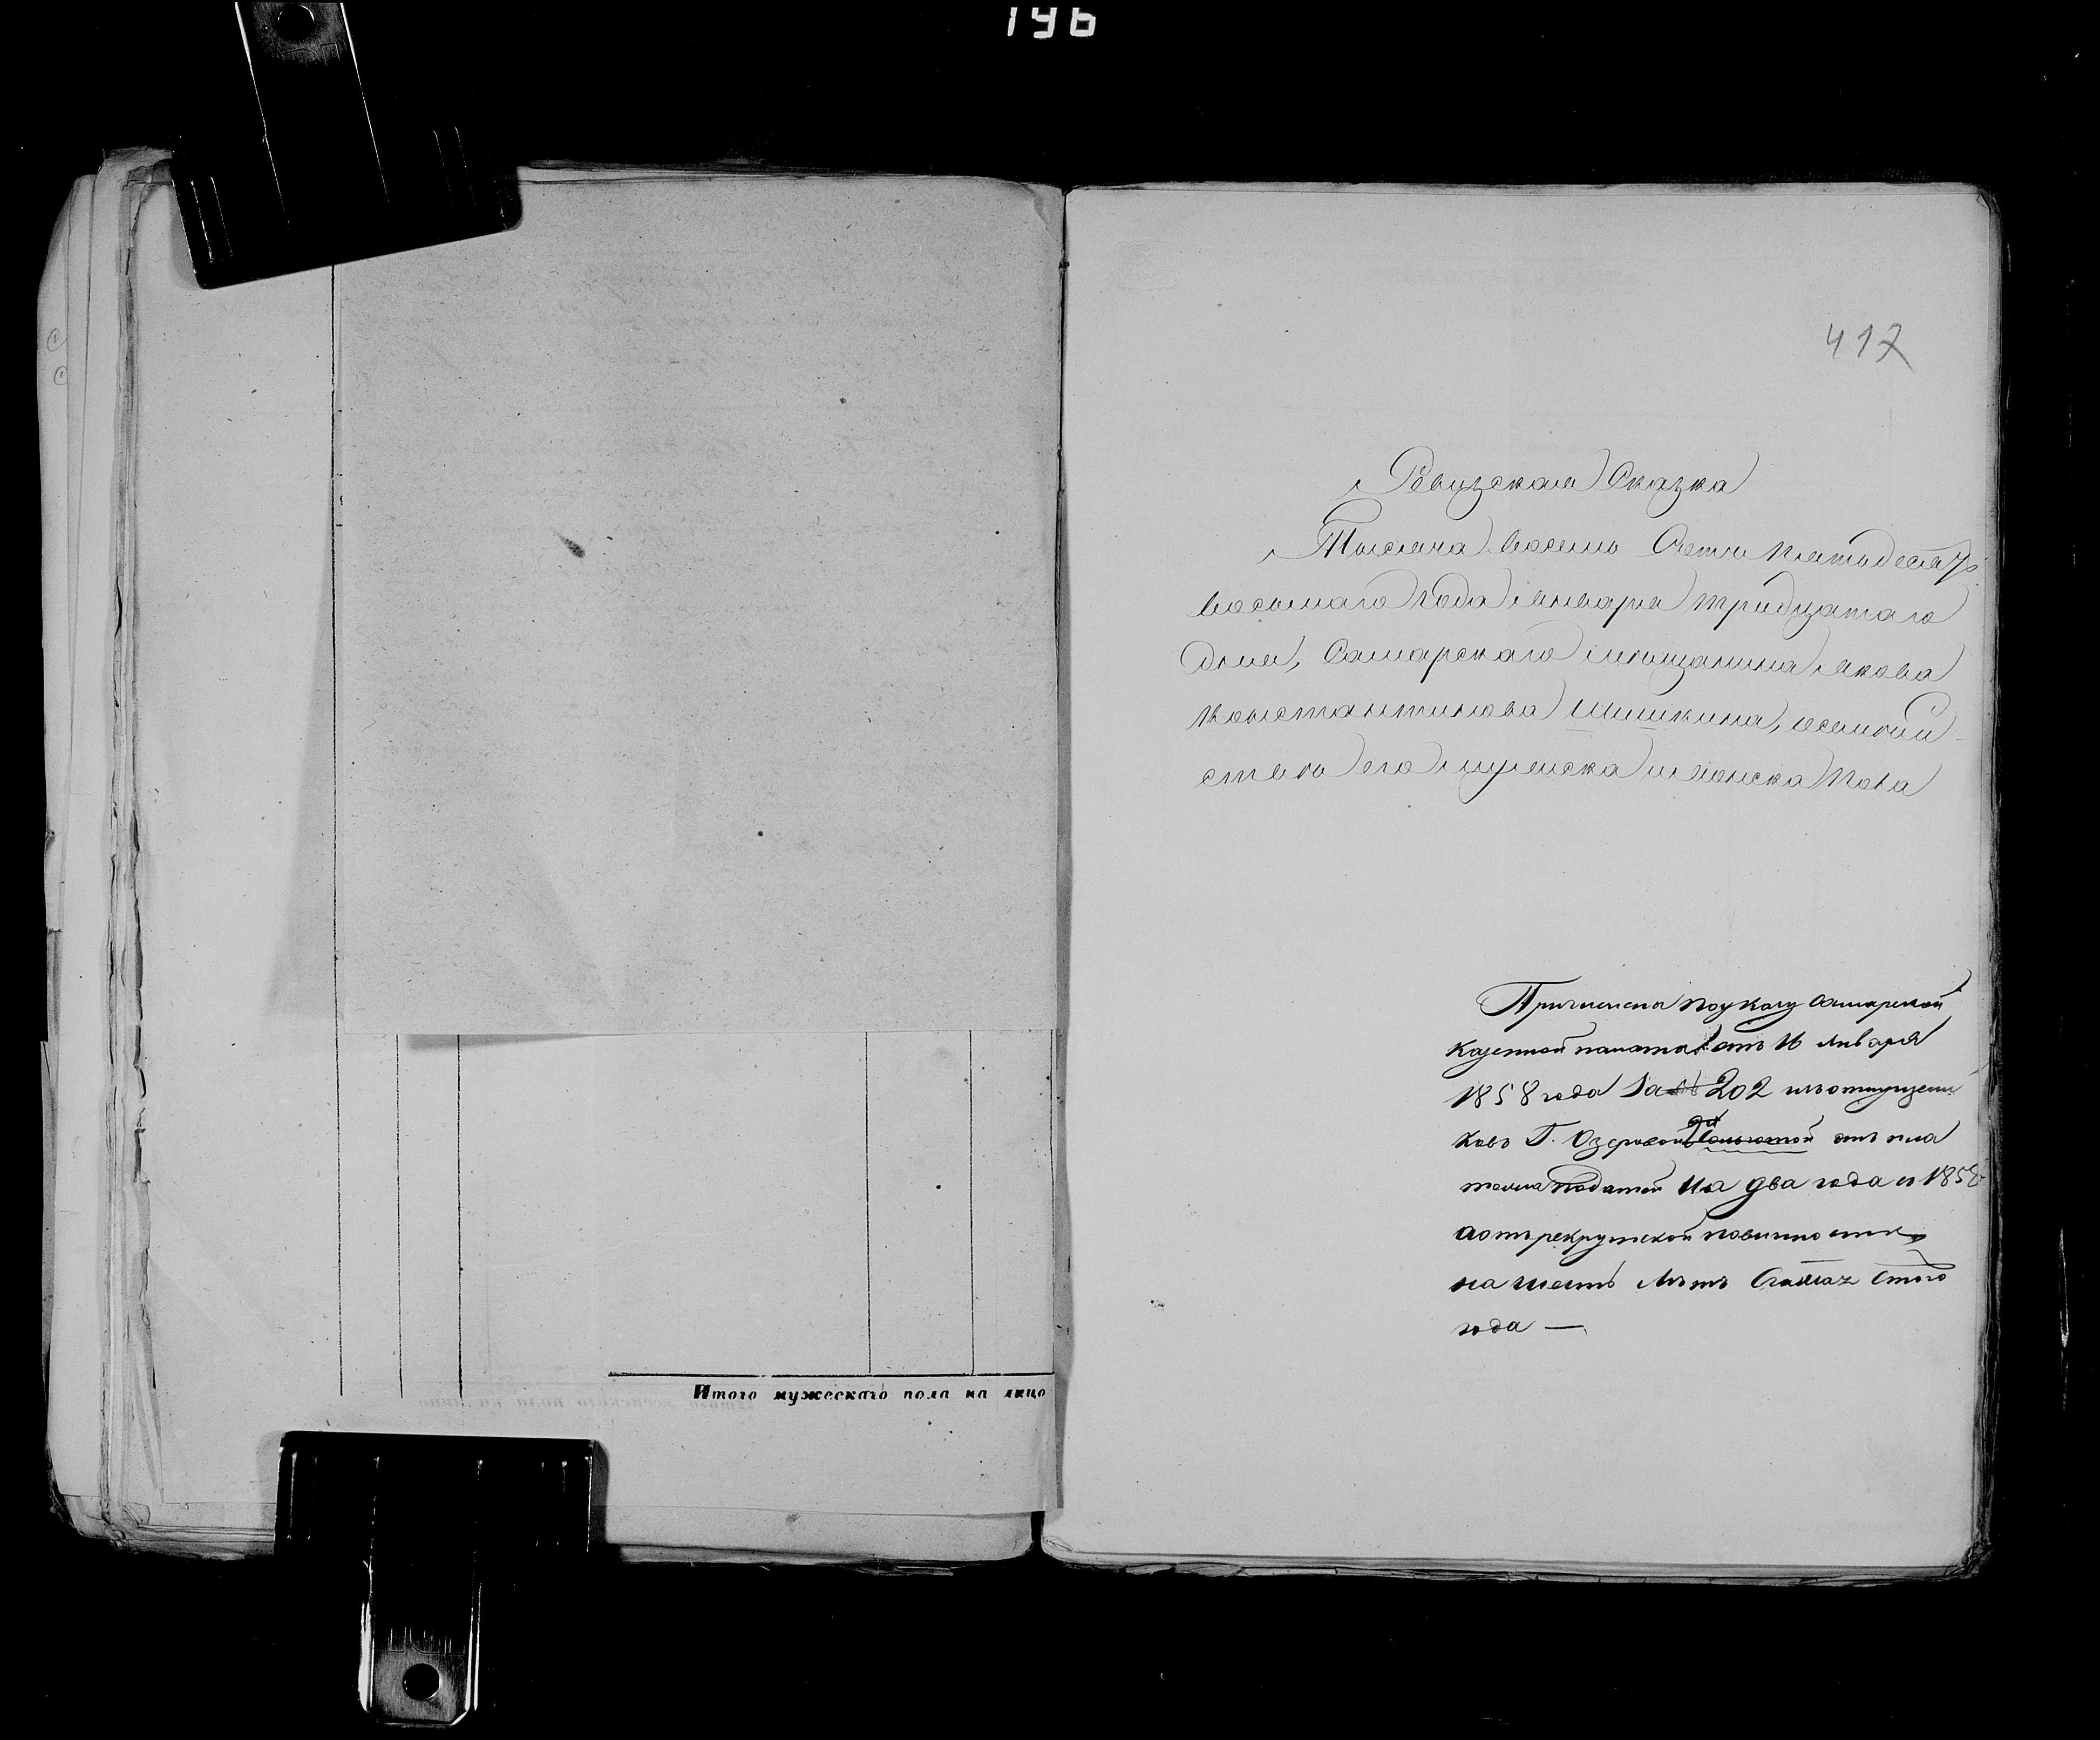 196
Итого мужескаго пола на лицо
417
Ревизская Сказка
Тысяча восемь Сотъ пятьдесятъ
восьмаго Года января тридцатаго
дня, Самарскаго мещанина Якова
Константинова Шишкина, осемѣй
ствѣ его мужеска и женска пола
Причислена по указу Самарской
Казенной палаты отъ 16 Января
1858 года за № 202 изъ отпущени
ковъ Г. Озеровой отъ пла
тежа податей на два года съ 1858
а отъ рекрутской повинности
на шесть лѣтъ Счатая Стого
года —